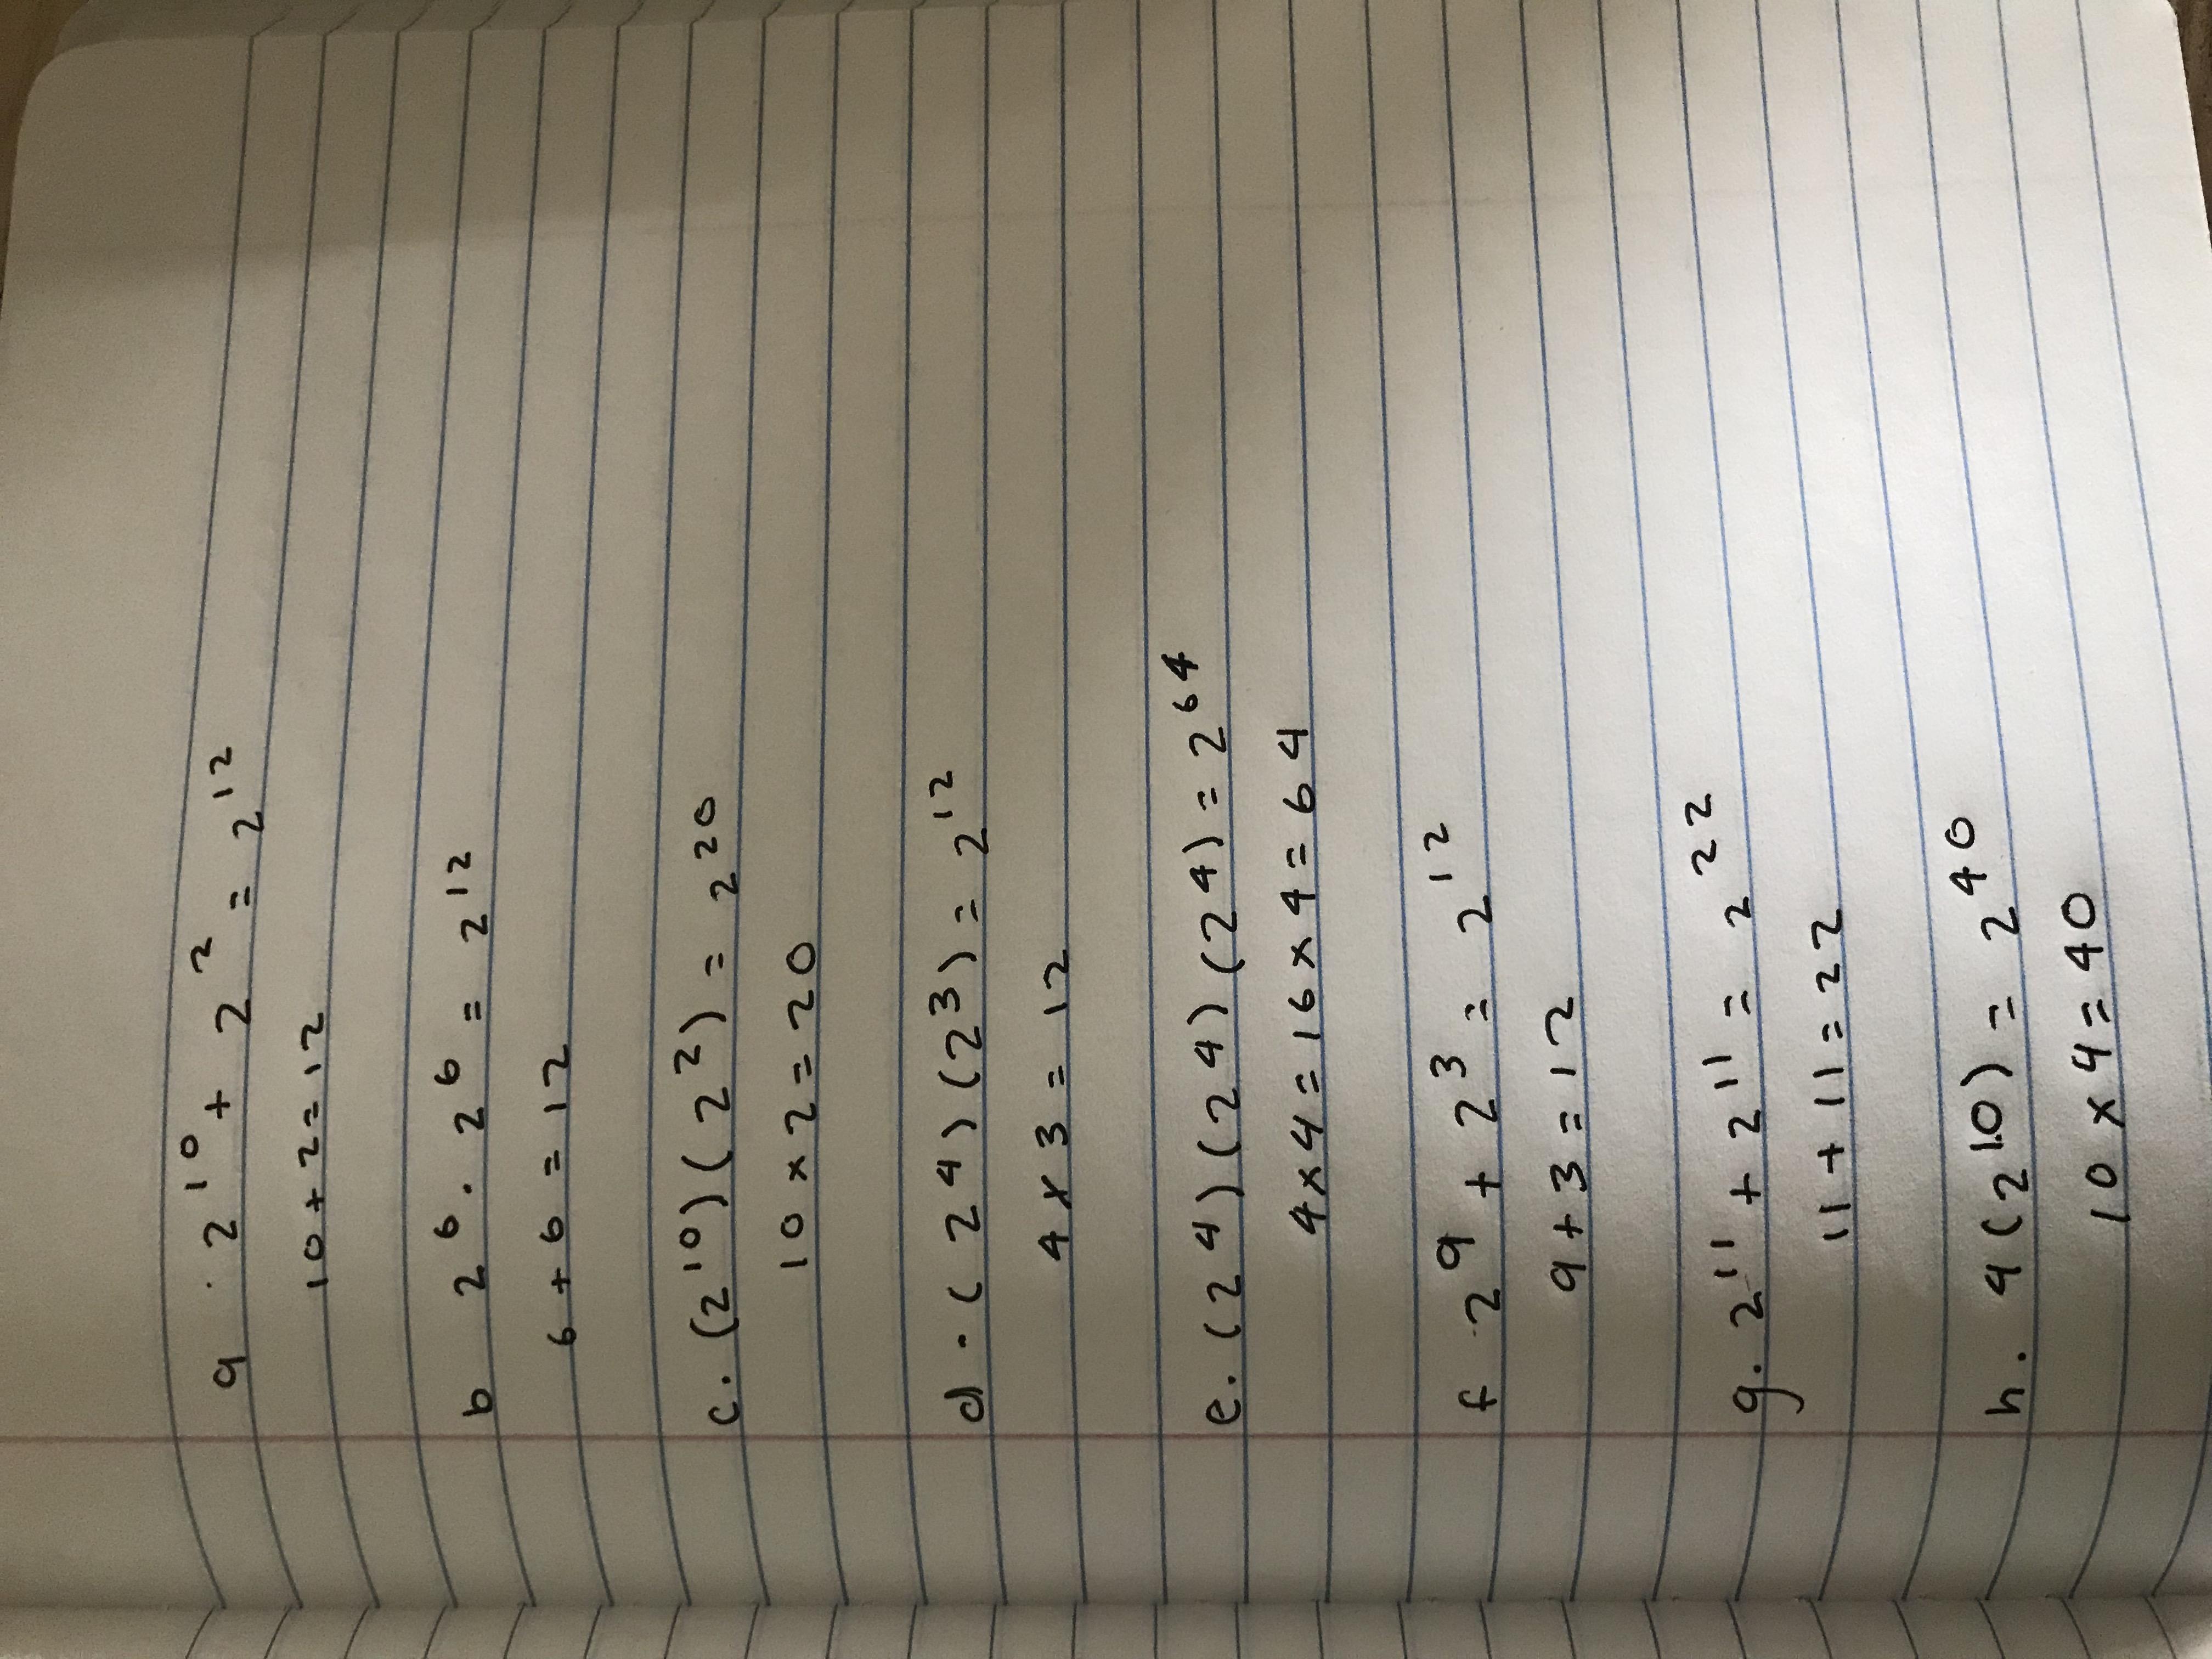 a . 2¹⁰ + 2² = 2¹²
10 + 2 = 12
b 2⁶ · 2⁶ = 2¹²
6 + 6 = 12
c. (2¹⁰) (2²) = 2²⁰
10 x 2 = 20
d. (2⁴) (2³) = 2¹²
4 x 3 = 12
e. (2⁴) (2⁴) (2⁴) = 2⁶⁴
4x4 = 16 x 4 = 64
f 2⁹ + 2³ = 2¹²
9 + 3 = 12
g. 2¹¹ + 2¹¹ = 2²²
11 + 11 = 22
h. 4 (2¹⁰) = 2⁴⁰
10 x 4 = 40